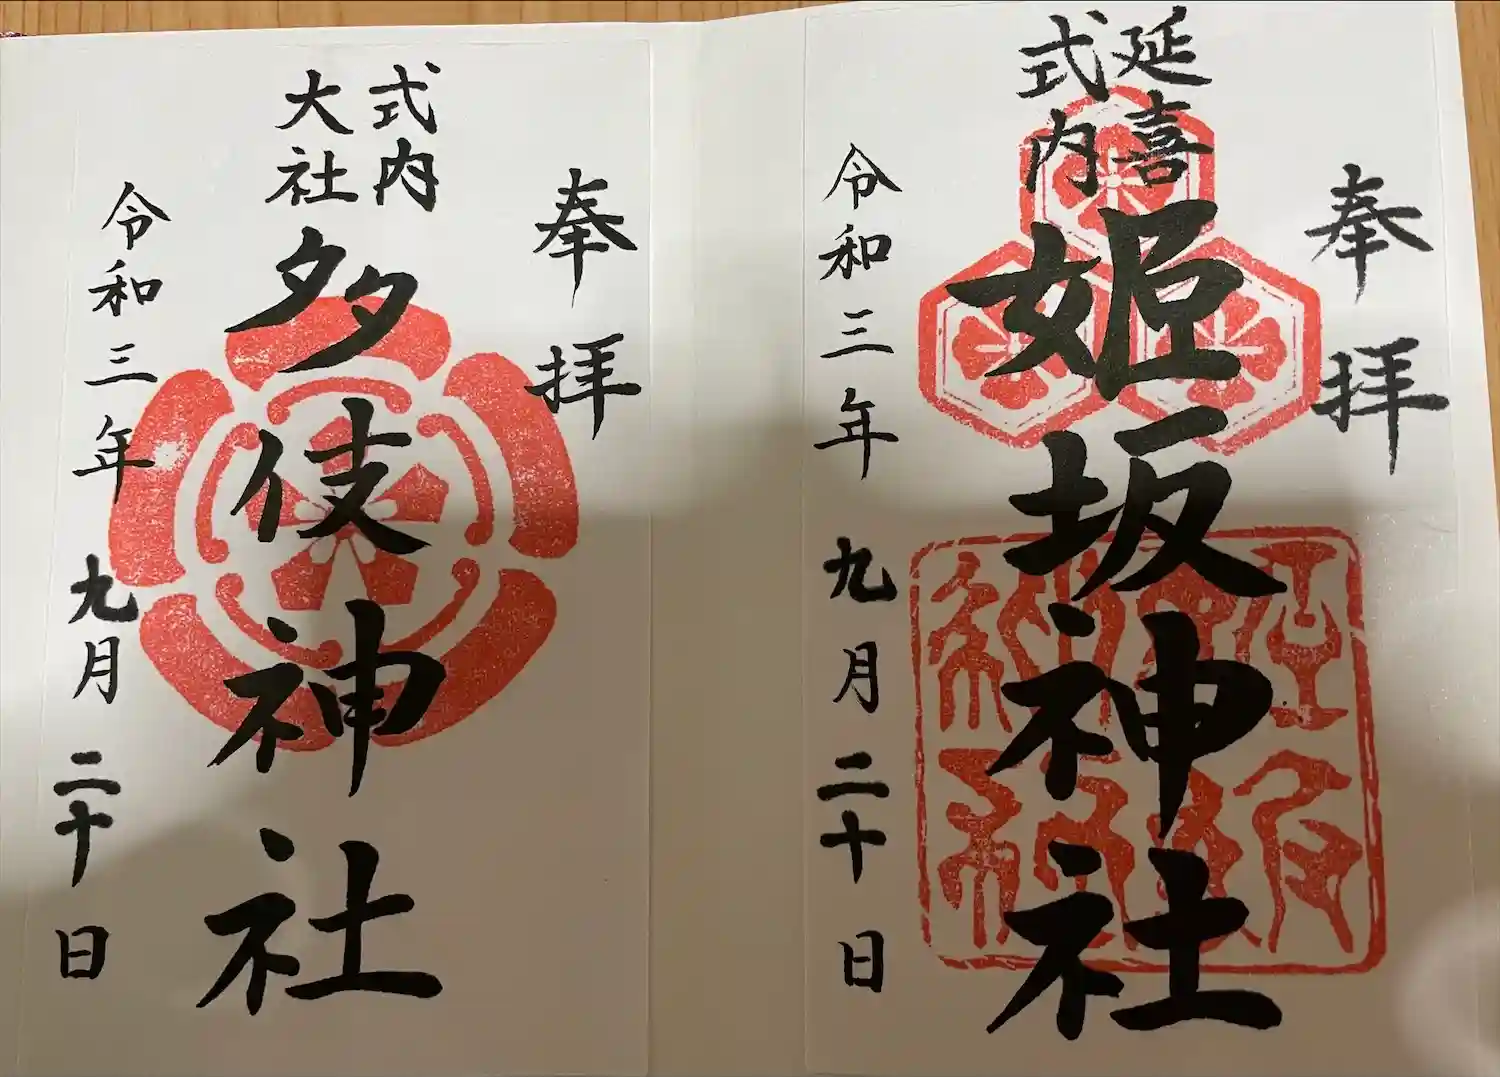 奉拝
延喜
式内
姫坂神社
令和三年九月二十日
奉拝
式内
大社
多伎神社
令和三年九月二十日